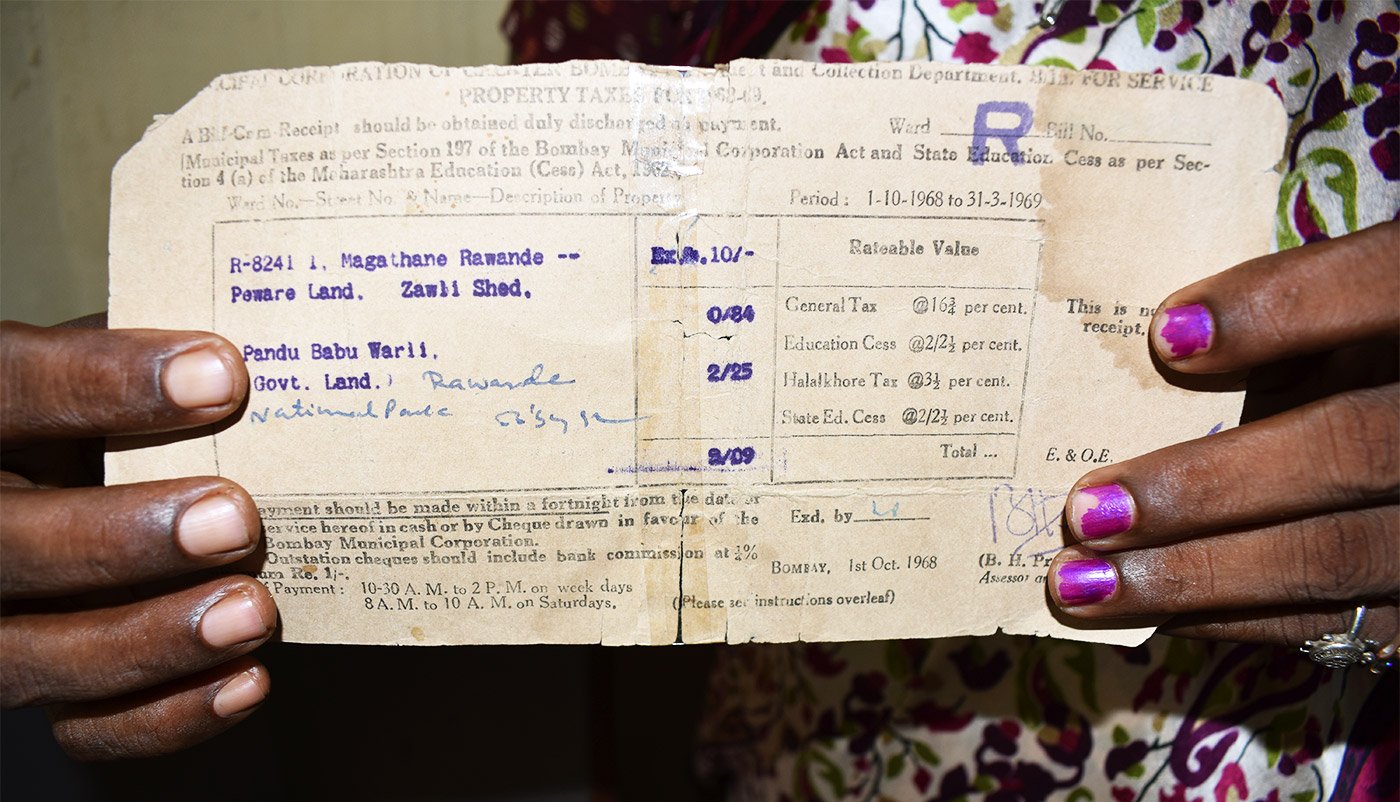 CIPAL CORPORATION OF GREATER BOMBAY and Collection Department. BILL FOR SERVICE
PROPERTY TAXES FOR 1968-69.
A Bill-Cum-Receipt should be obtained duly discharged on payment.
Ward R Bill No.
[Municipal Taxes as per Section 197 of the Bombay Municipal Corporation Act and State Education Cess as per Sec-
tion 4 (a) of the Maharashtra Education (Cess) Act, 1962.
Ward No.—Street No. & Name—Description of Property
Period : 1-10-1968 to 31-3-1969
R-8241 1, Magathane Rawande --
Peware Land. Zawli Shed.
Pandu Babu Warli.
(Govt. Land.) Rawande
National Park
10/-
0/84
2/25
3/09
Rateable Value
General Tax @16¾ per cent.
Education Cess @2/2½ per cent.
Halalkhore Tax @3½ per cent.
State Ed. Cess @2/2½ per cent.
Total ...
This is no
receipt.
E. & O.E.
ayment should be made within a fortnight from the date of
service hereof in cash or by Cheque drawn in favour of the
Bombay Municipal Corporation.
Outstation cheques should include bank commission at ¼%
um Re. 1/-.
f Payment : 10-30 A. M. to 2 P. M. on week days
8 A. M. to 10 A. M. on Saturdays.
Exd. by
BOMBAY, 1st Oct. 1968
(B. H. Pr
Assessor an
(Please see instructions overleaf)